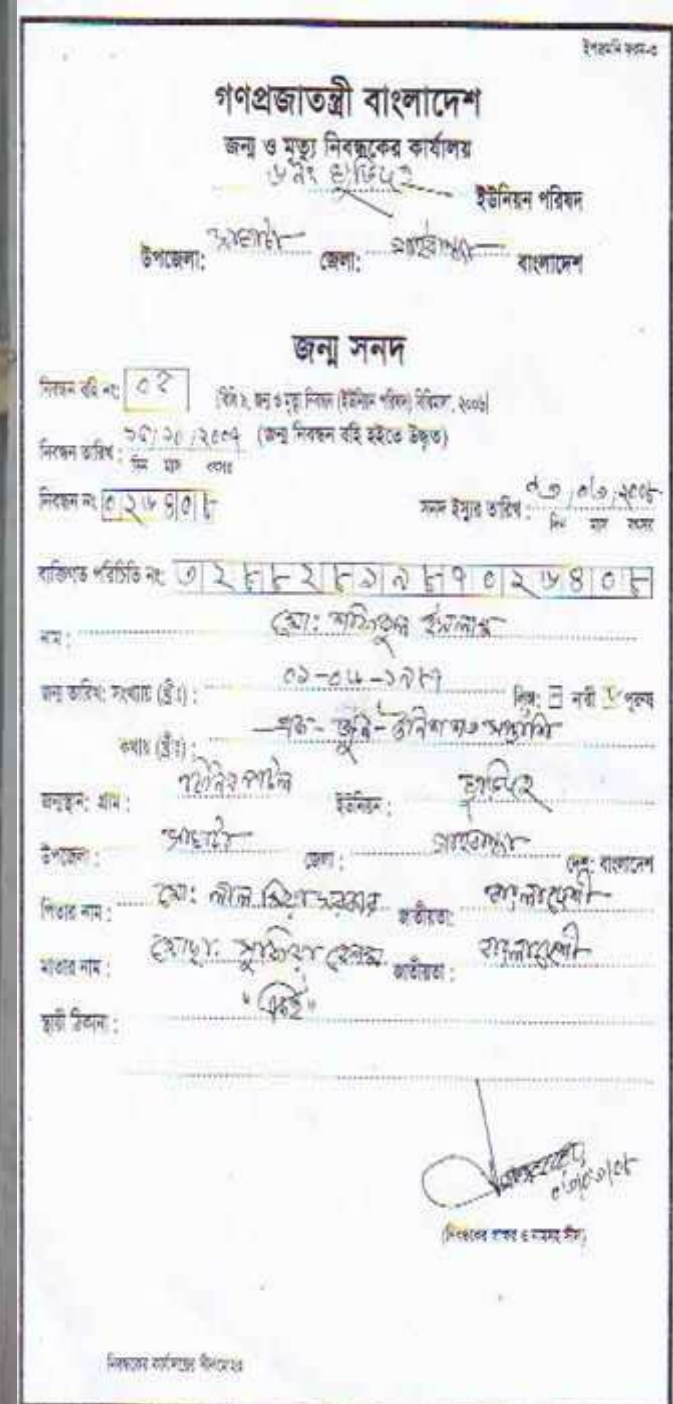 ইউপিজনি ফরম-৩
গণপ্রজাতন্ত্রী বাংলাদেশ
জন্ম ও মৃত্যু নিবন্ধকের কার্যালয়
৬নং ঘুড়িদহ ইউনিয়ন পরিষদ
উপজেলা: সাঘাটা জেলা: গাইবান্ধা বাংলাদেশ
জন্ম সনদ
নিবন্ধন বহি নং: ০২
[বিধি ৯, জন্ম ও মৃত্যু নিবন্ধন (ইউনিয়ন পরিষদ) বিধিমালা, ২০০৬]
নিবন্ধন তারিখ : /২০০৭ (জন্ম নিবন্ধন বহি হইতে উদ্ধৃত)
দিন মাস বৎসর
নিবন্ধন নং ০২৬৪০৮ সনদ ইস্যুর তারিখ : ০৩/০৩/২০০৮
দিন মাস বৎসর
ব্যক্তিগত পরিচিতি নং: ৩২৮৮২৮১৯৮৭০২৬৪০৮
নাম : মো: শফিকুল ইসলাম
জন্ম তারিখ: সংখ্যায় (খ্রীঃ) : ০১-০৬-১৯৮৭ লিঙ্গ: নারী পুরুষ
কথায় (খ্রীঃ) : এক- জুন- উনিশ শত সাতাশি
জন্মস্থান: গ্রাম : ইউনিয়ন : ঘুড়িদহ
উপজেলা : সাঘাটা জেলা : গাইবান্ধা দেশ: বাংলাদেশ
পিতার নাম : মো: লাল মিয়া সরকার জাতীয়তা: বাংলাদেশী
মাতার নাম : মোছা: সুফিয়া বেগম জাতীয়তা : বাংলাদেশী
স্থায়ী ঠিকানা : "একই"
০৩/০৩/০৮
(নিবন্ধকের স্বাক্ষর ও নামসহ সীল)
নিবন্ধকের কার্যালয়ের সীলমোহর